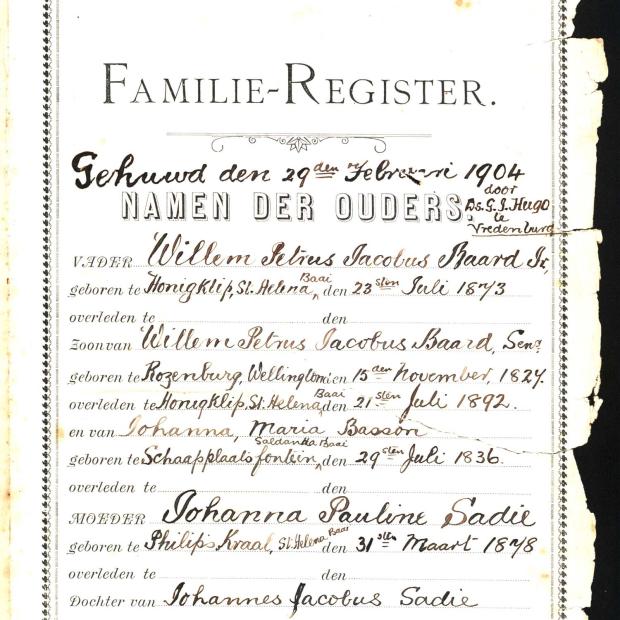 FAMILIE-REGISTER.
Gehuwd den 29den Februari 1904
door
Ds. G. J. Hugo
te
Vredenburg
NAMEN DER OUDERS.
VADER Willem Petrus Jacobus Baard Jr.
geboren te Honigklip, St. Helena Baai, den 23sten Juli 1873
overleden te den
Zoon van Willem Petrus Jacobus Baard, Senr.
geboren te Rozenburg, Wellington den 15den November, 1827.
overleden te Honigklip, St. Helena Baai den 21sten Juli 1892.
en van Johanna, Maria Basson
geboren te Schaapplaatsfontein, Saldanha Baai den 29sten Juli 1836.
overleden te den
MOEDER Johanna Pauline Sadie
geboren te Philips Kraal, St. Helena Baai den 31sten Maart 1878
overleden te den
Dochter van Johannes Jacobus Sadie